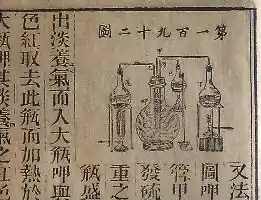 第一百九十二圖
又法
圖呷
管甲
發硫
重之
瓶盛
出淡養氣而入大瓶呷與
色紅取去此瓶而加熱於
大瓶呷其淡養氣之紅